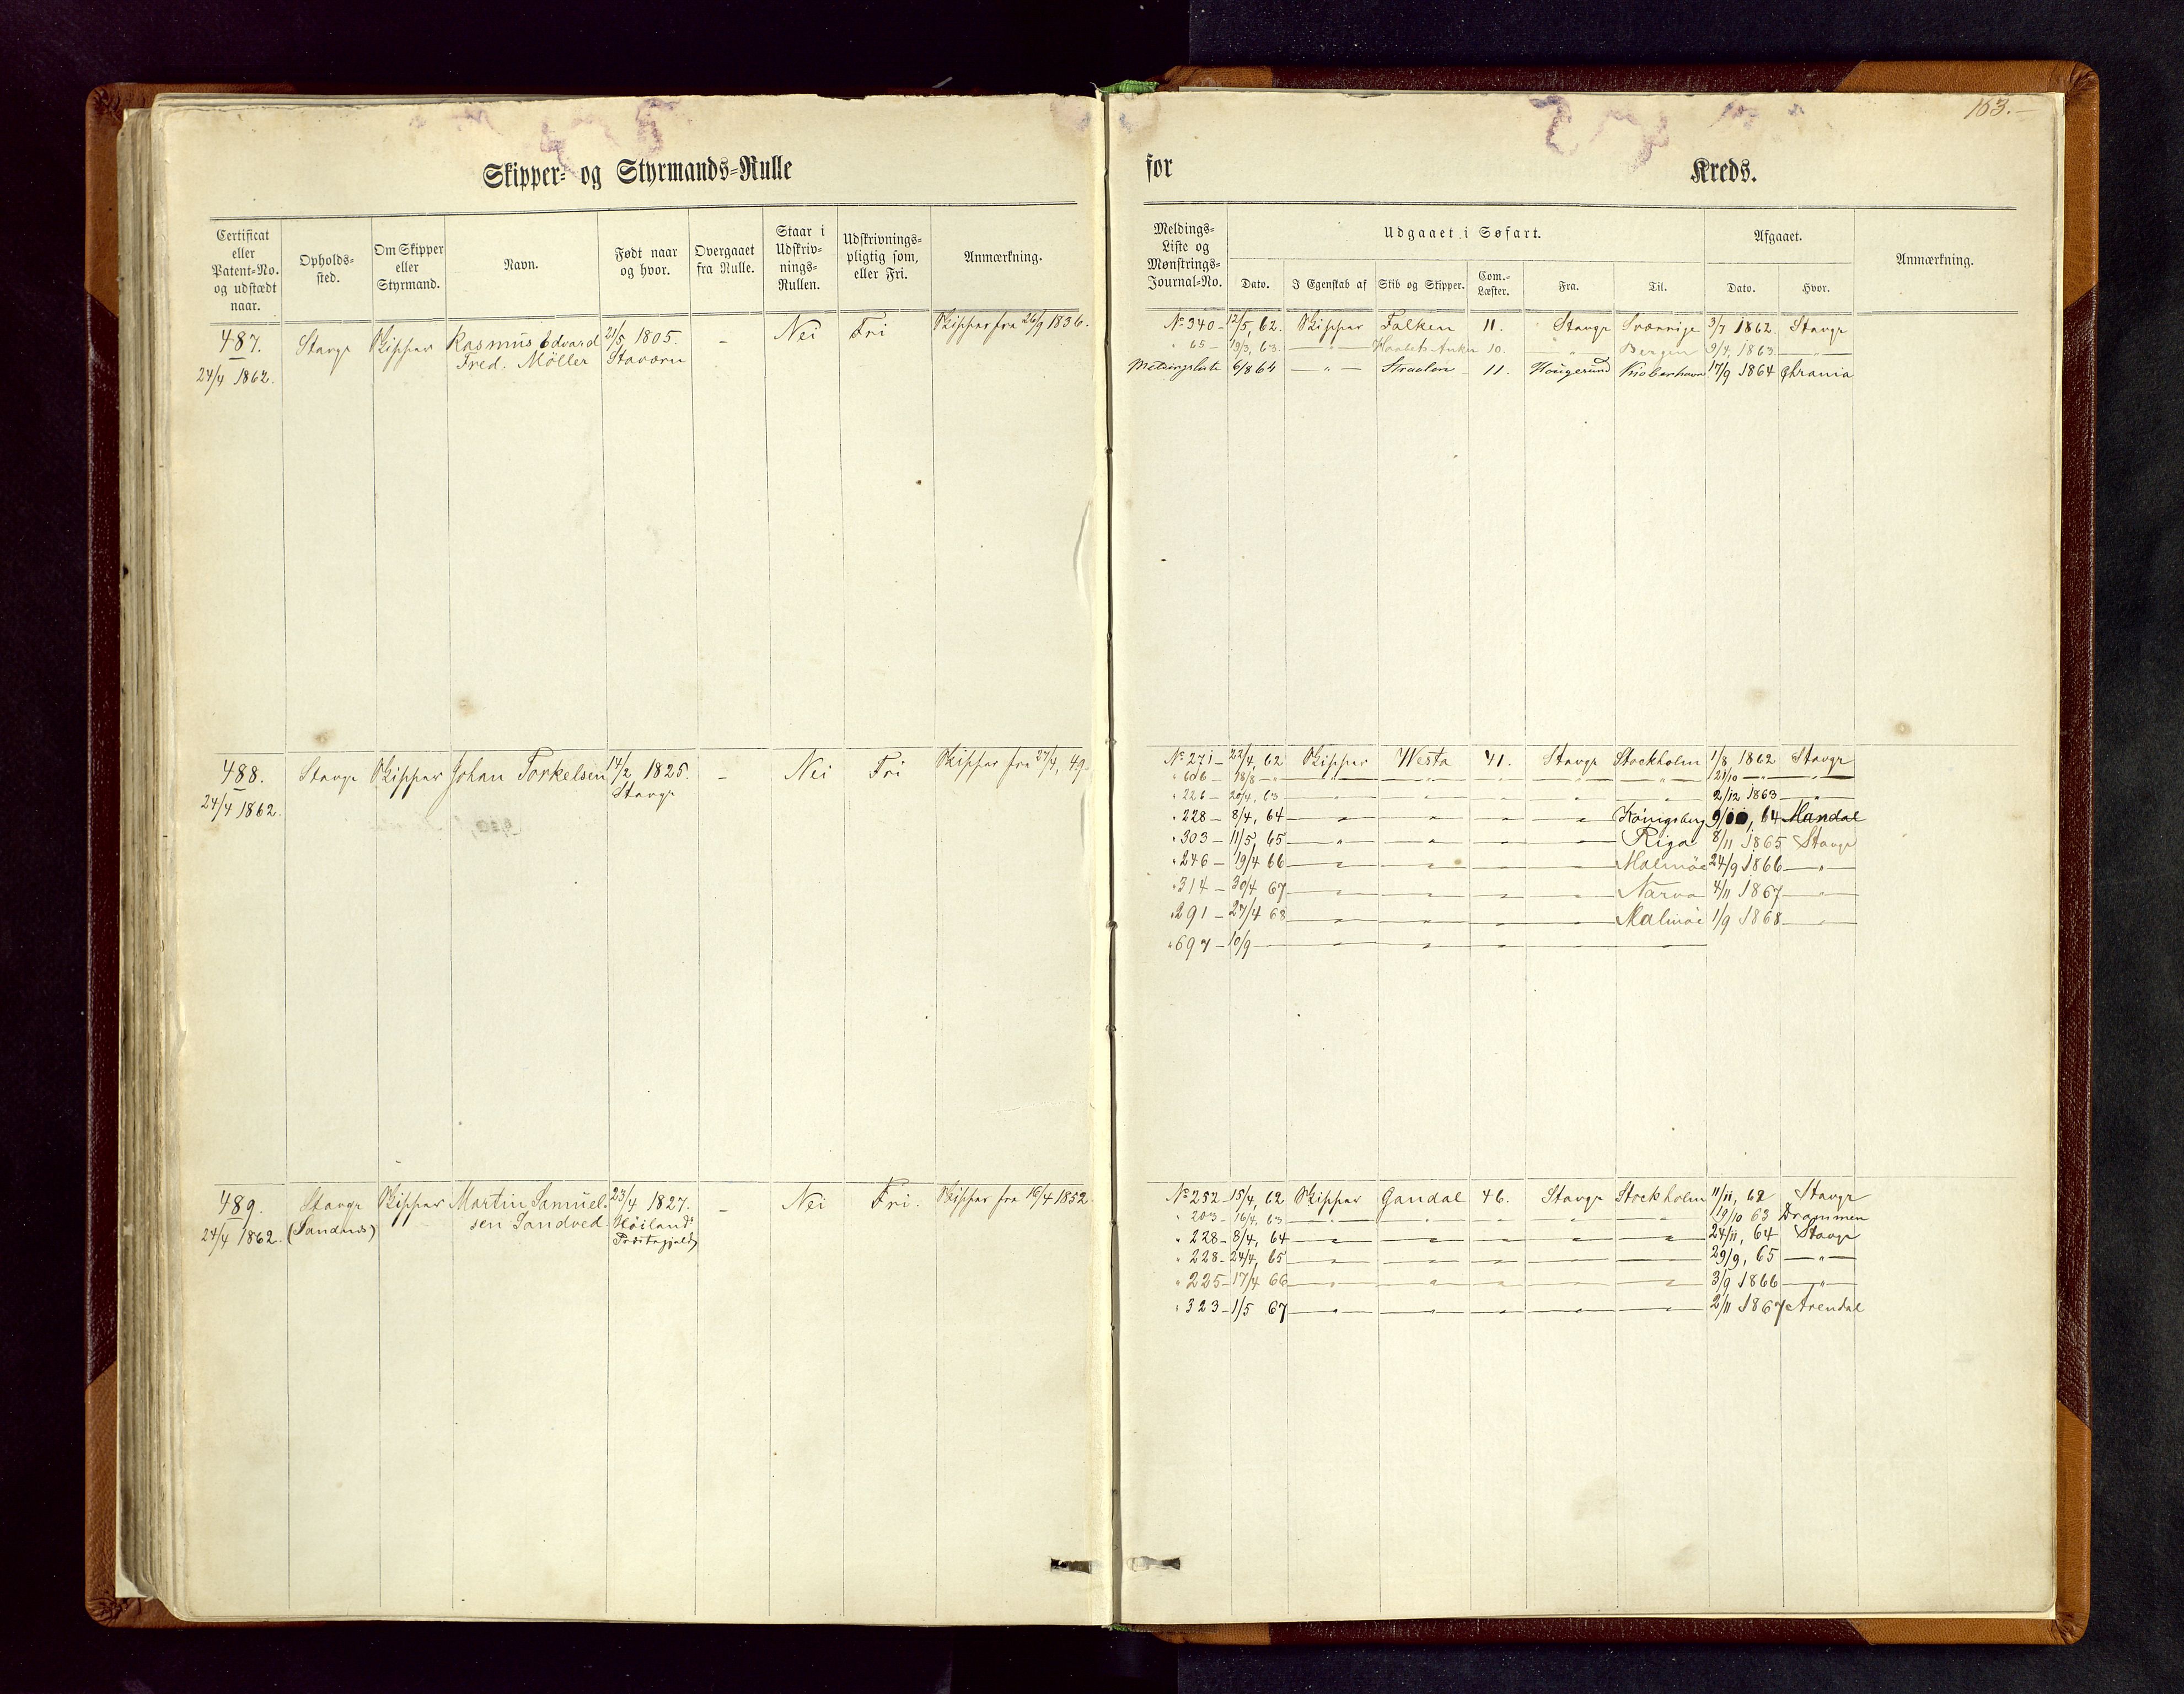 163.
Skipper- og Styrmands-Rulle
for Kreds.
Certificat eller Patent-No. og udstædt naar. Opholds-sted. Om Skipper eller Styrmand. Navn. Født naar og hvor. Overgaaet fra Rulle. Staar i Udskriv-nings-Rullen. Udskrivnings-pligtig som, eller Fri. Anmærkning.
Meldings-Liste og Mønstrings-Journal-No. Udgaaet i Søfart. Afgaaet. Anmærkning.
Dato. I Egenskab af Skib og Skipper. Com.-Læster. Fra. Til. Dato. Hvor.
487. Stavgr Skipper Rasmus Edvard 21/5 1805. - Nei Fri Skipper fra 26/9 1836.
24/4 1862. Fred. Möller Staværn
No 340 - 12/5, 62. Skipper Falken 11. Stavgr Sverrige 3/7 1862. Stavgr
" 65 - 19/3, 63. — " — Haabets Anker 10. " Bergen 9/4, 1863. — " —
Meldingsliste 6/8 64 — " — Straalen 11. Haugesund Kiobenhavn 17/9 1864 Chrania
488. Stavgr Skipper Johan Torkelsen 14/2 1825. - Nei Fri Skipper fra 27/4, 49.
24/4 1862. Stavgr
No 271 - 22/4, 62 Skipper Westa 41. Stavgr Stockholm 1/8, 1862 Stavgr
" 606 - 18/8 - " — " — " — " — " — " — 21/10 — " — " —
" 226 - 20/4, 63 — " — " — " — " — " — 2/12 1863 — " —
" 228 - 8/4, 64 — " — " — " — " — Königsberg 9/10, 64 Mandal
" 303 - 11/5, 65 — " — " — " — " — Riga 8/11 1865 Stavgr
" 246 - 19/4 66 — " — " — " — " — Malmöe 24/9 1866 — " —
" 314 - 30/4 67 — " — " — " — " — Narva 4/11 1867 — " —
" 291 - 27/4 68 — " — " — " — " — Malmöe 1/9 1868 — " —
" 697 - 10/9 — " — " — " — " — " —
489. Stavgr Skipper Martin Samuel- 23/4 1827. - Nei Fri. Skipper fra 16/4 1852.
24/4 1862. (Sandnes) sen Sandved Höilands
Præstegjeld
No 252 - 15/4, 62 Skipper Gandal 46. Stavgr Stockholm 11/11, 62 Stavgr
" 203 - 16/4, 63 — " — " — " — " — " — 19/10 63 Drammen
" 228 - 8/4, 64 — " — " — " — " — " — 24/11, 64 Stavgr
" 228 - 24/4, 65 — " — " — " — " — " — 29/9, 65 — " —
" 225 - 17/4 66 — " — " — " — " — " — 3/9 1866 — " —
" 323 - 1/5 67 — " — " — " — " — " — 2/11 1867 Arendal